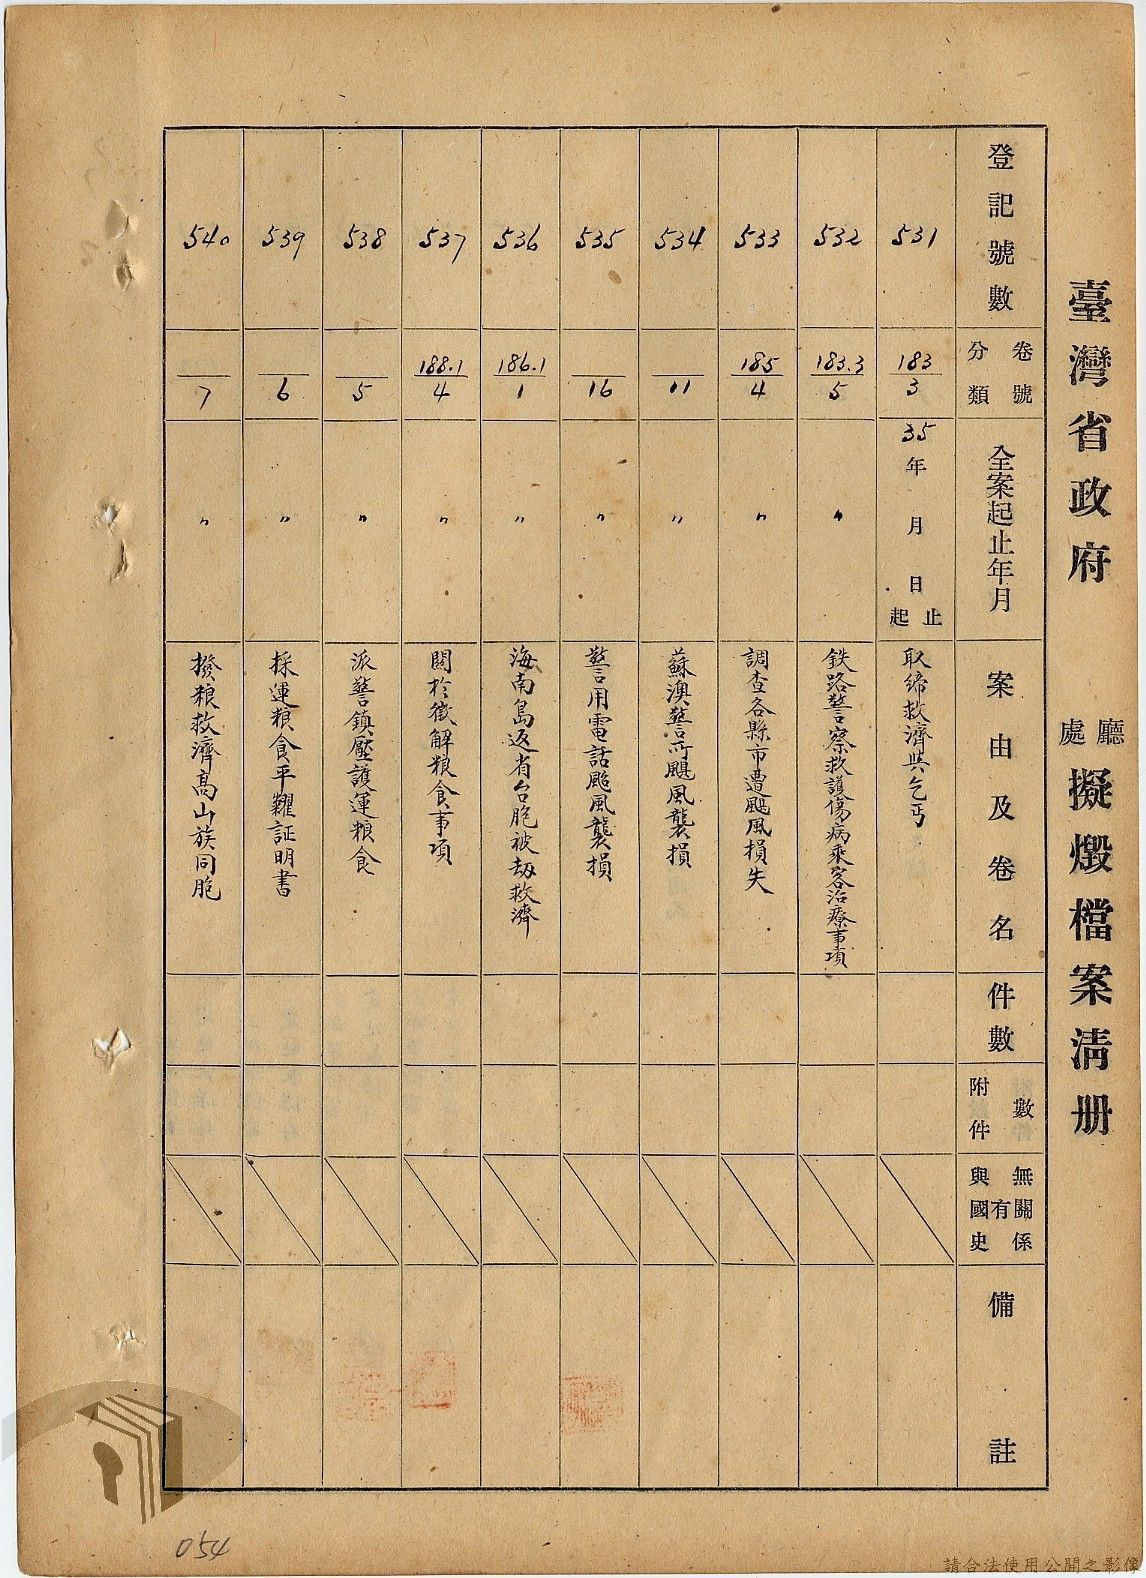 臺灣省政府 廳處 擬燬檔案清冊
登記號數 分類卷號 全案起止年月 案由及卷名 件數 附件數 與國史有無關係 備註
531 183/3 35年 月 日 起止 取締救濟與乞丐
532 183.3/5 〃 鉄路警察救護傷病乘客治療事項
533 185/4 〃 調查各縣市遭颱風損失
534 /11 〃 蘇澳警所颱風襲損
535 /16 〃 警用電話颱風襲損
536 186.1/1 〃 海南島返省台胞被劫救濟
537 188.1/4 〃 關於徵解粮食事項
538 /5 〃 派警鎮壓護運粮食
539 /6 〃 採運粮食平糶証明書
540 /7 〃 撥粮救濟高山族同胞
054
請合法使用公開之影像